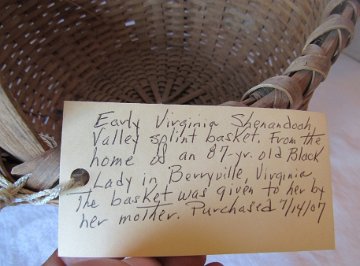 Early Virginia Shenandoah
Valley splint basket. From the
home of an 87-yr. old Black
Lady in Berryville, Virginia
The basket was given to her by
her mother. Purchased 7/14/07